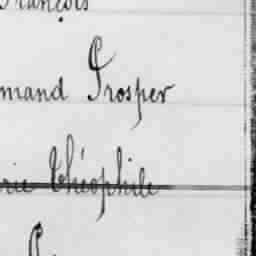 François
mand Prosper
rie Théophile